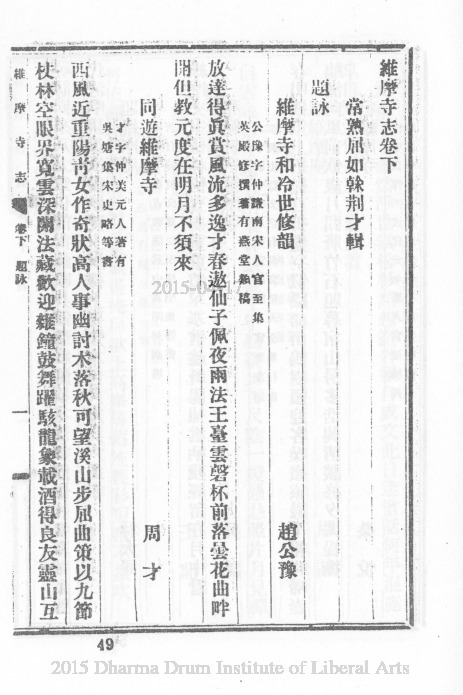 維摩寺志卷下
常熟屈如榦荆才輯
題詠
維摩寺和冷世修韻
趙公豫
公豫字仲謙南宋人官至集
英殿修撰著有燕堂類稿
放達得眞賞風流多逸才春遨仙子佩夜雨法王臺雲磬杯前落曇花曲畔
開但教元度在明月不須來
同遊維摩寺
周才
才字仲美元人著有
吳塘集宋史略等書
西風近重陽靑女作奇狀高人事幽討木落秋可望溪山步屈曲策以九節
杖林空眼界寬雲深闊法藏歡迎雜鐘鼓舞躍駭龍象載酒得良友靈山互
維摩寺志
卷下 題詠
一
49
2015-0
2015 Dharma Drum Institute of Liberal Arts